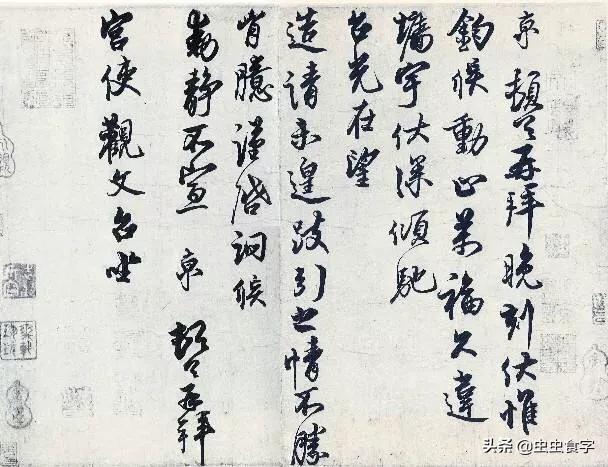 京 頓首再拜晚刻伏惟
鈞候動止萬福久違
墻宇伏深傾馳
台光在望
造請未遑跂引之情不勝
胷臆謹啓詗候
動靜不宣 京 頓首再拜
宮使觀文台坐
头条 @虫虫食字